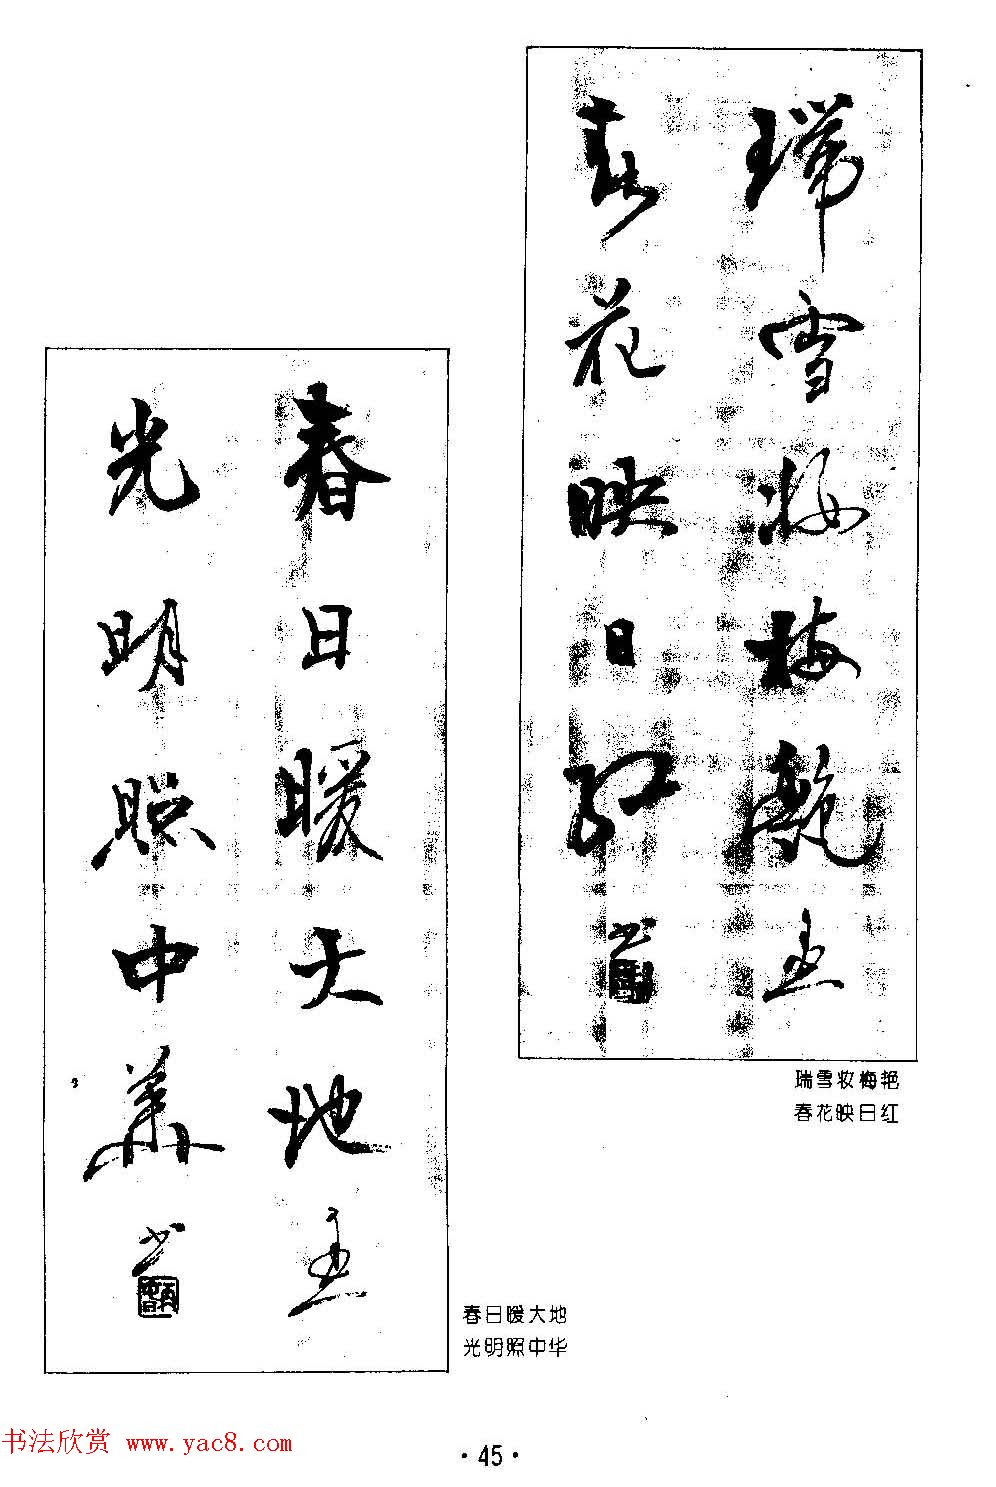 瑞雪妆梅艳
春花映日红
瑞雪妆梅艳
春花映日红
春日暖大地
光明照中华
春日暖大地
光明照中华
书法欣赏 www.yac8.com
·45·